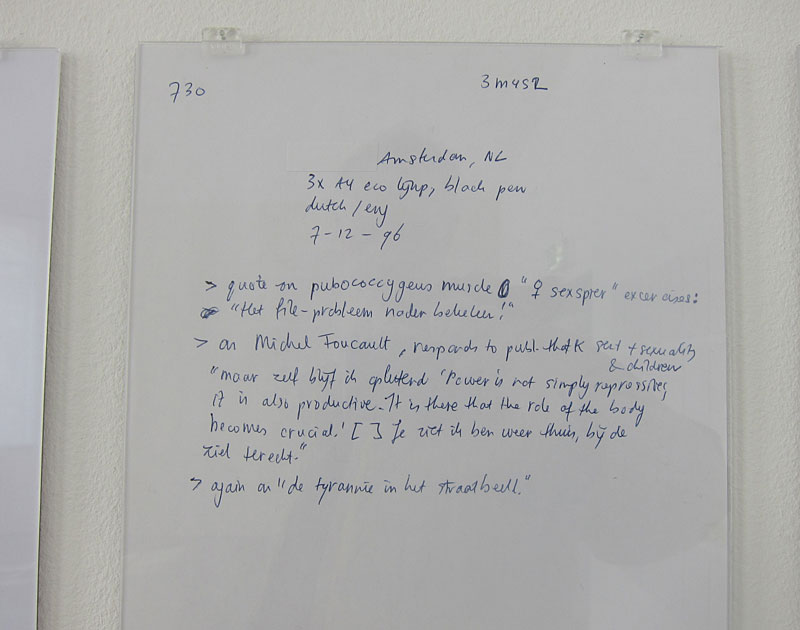 730
3 mysz
Amsterdam, NL
3x A4 eco lijnp, black pen
dutch / eng
7-12-96
> quote on pubococcygeus muscle "♀ sexspier" excercises:
"Het file-probleem nader bekeken!"
> on Michel Foucault, responds to publ. that K sext + sexuality
& children
"maar zelf blijf ik opletend 'Power is not simply repressive,
it is also productive. It is there that the role of the body
becomes crucial.' [ ] Je ziet ik ben weer thuis, bij de
ziel terecht."
> again on "de tyrannie in het straatbeeld."